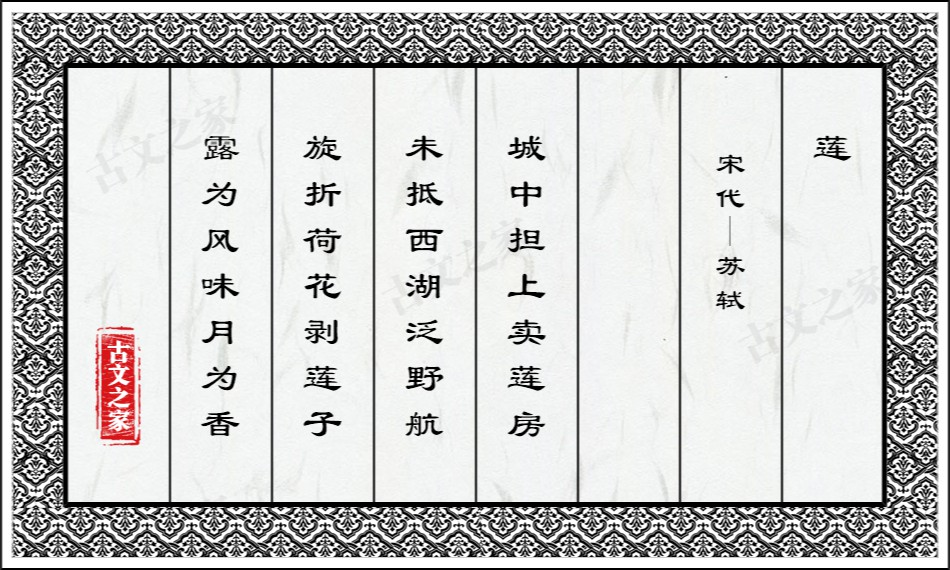 莲
宋代—苏轼
城中担上卖莲房
未抵西湖泛野航
旋折荷花剥莲子
露为风味月为香
古文之家
古文之家
古文之家
古文之家